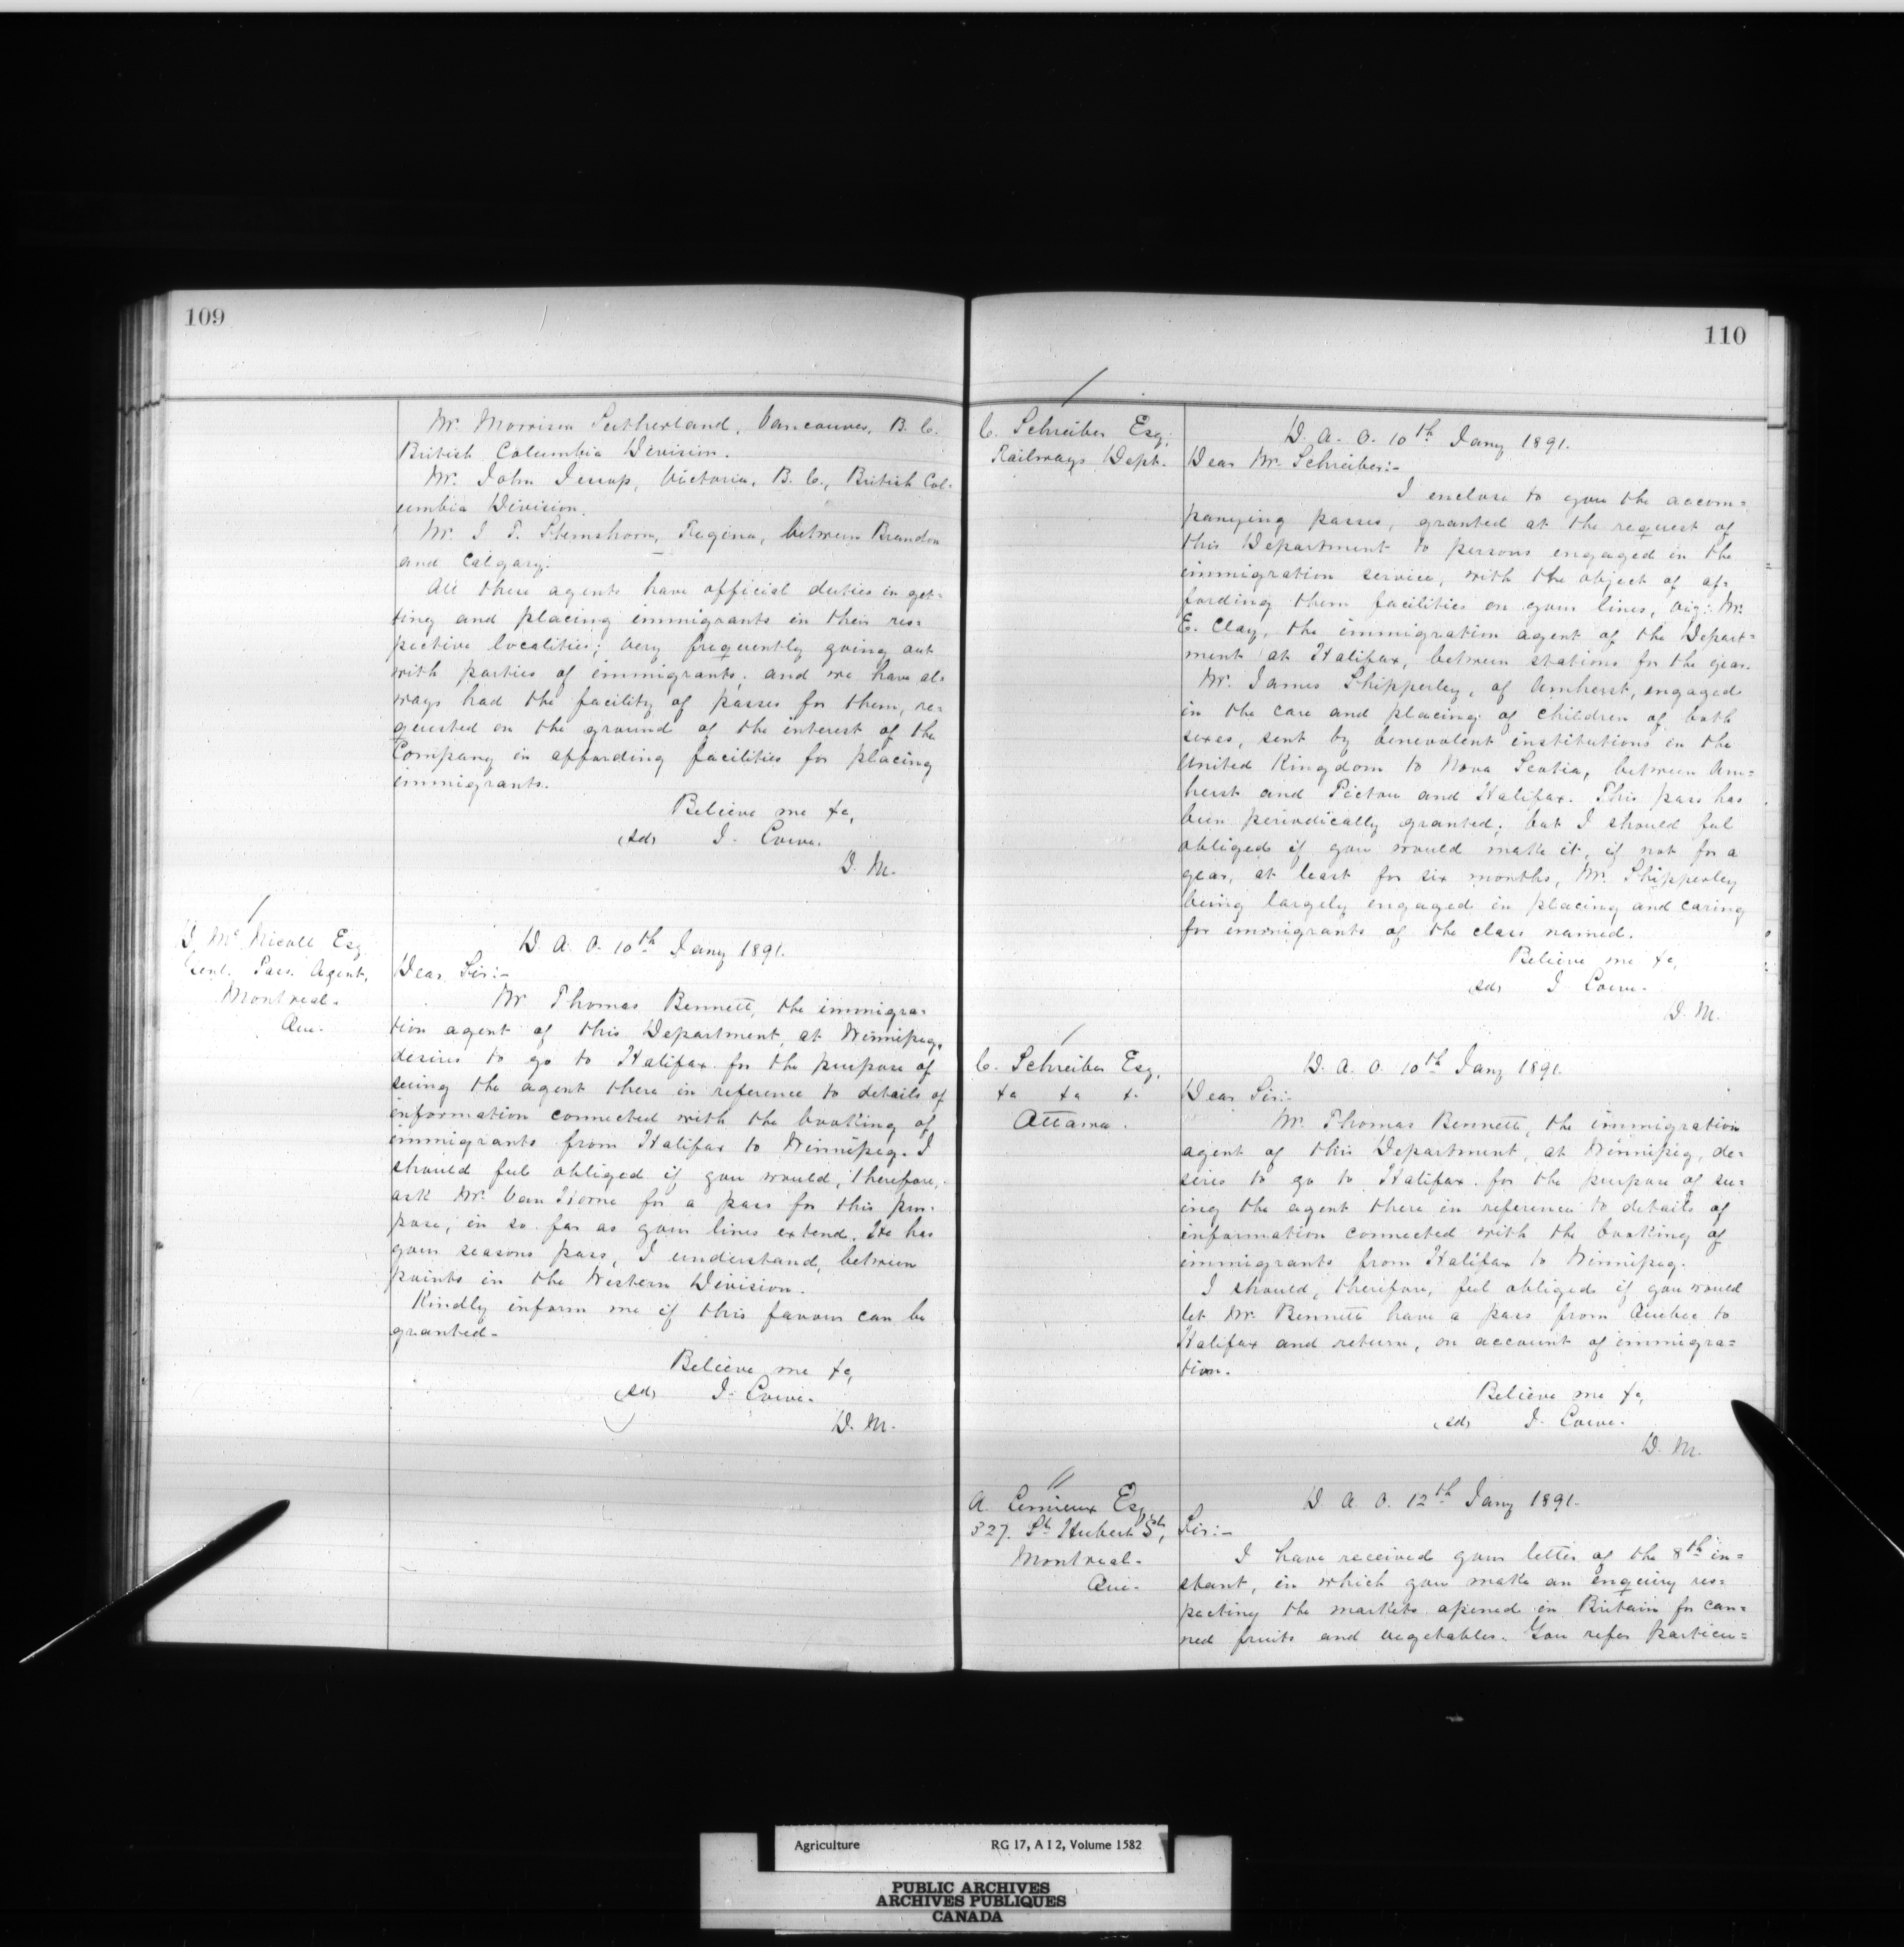 109
Mr. Morrison Sutherland, Vancouver, B. C.
British Columbia Division.
Mr. John Jessop, Victoria, B. C., British Col=
umbia Division.
Mr. J. T. Stemshorn, Regina, between Brandon
and Calgary.
All these agents have official duties in get=
ting and placing immigrants in their res=
pective localities; very frequently going out
with parties of immigrants; and we have al=
ways had the facility of passes for them, re=
quested on the ground of the interest of the
Company in affording facilities for placing
immigrants.
Believe me &c,
(sd) J. Lowe.
D. M.
D. McNicoll Esq.
Genl. Pass. Agent,
Montreal.
Que.
D. A. O. 10th Jany 1891.
Dear Sir:-
Mr Thomas Bennett, the immigra=
tion agent of this Department, at Winnipeg,
desires to go to Halifax for the purpose of
seeing the agent there in reference to details of
information connected with the booking of
immigrants from Halifax to Winnipeg. I
should feel obliged if you would, therefore,
ask Mr. Van Horne for a pass for this pur=
pose, in so far as your lines extend. He has
your seasons pass, I understand, between
points in the Western Division.
Kindly inform me if this favour can be
granted-
Believe me &c,
(sd) J. Lowe.
D. M.
110
C. Schreiber Esq.
Railways Dept.
D. A. O. 10th Jany 1891.
Dear Mr. Schreiber:-
I enclose to you the accom=
panying passes, granted at the request of
this Department to persons engaged in the
immigration service, with the object of af=
fording them facilities on your lines, viz: Mr.
E. Clay, the immigration agent of the Depart=
ment at Halifax, between stations for the year.
Mr. James Shipperley, of Amherst, engaged
in the care and placing of children of both
sexes, sent by benevolent institutions in the
United Kingdom to Nova Scotia, between Am=
herst and Pictou and Halifax. This pass has
been periodically granted; but I should feel
obliged if you would make it, if not for a
year, at least for six months, Mr. Shipperley
being largely engaged in placing and caring
for immigrants of the class named.
Believe me &c,
(sd) J. Lowe.
D. M.
C. Schreiber Esq,
&c &c &c
Ottawa.
D. A. O. 10th Jany 1891.
Dear Sir:-
Mr. Thomas Bennett, the immigration
agent of this Department, at Winnipeg, de=
sires to go to Halifax for the purpose of see=
ing the agent there in reference to details of
information connected with the booking of
immigrants from Halifax to Winnipeg.
I should, therefore, feel obliged if you would
let Mr. Bennett have a pass from Quebec to
Halifax and return, on account of immigra=
tion.
Believe me &c,
(sd) J. Lowe.
D. M.
A. Lemieux Esq.
327. St Hubert St,
Montreal.
Que.
D. A. O. 12th Jany 1891.
Sir:-
I have received your letter of the 8th in=
stant, in which you make an enquiry res=
pecting the markets opened in Britain for can=
ned fruits and vegetables. You refer particu=
Agriculture RG 17, A I 2, Volume 1582
PUBLIC ARCHIVES
ARCHIVES PUBLIQUES
CANADA